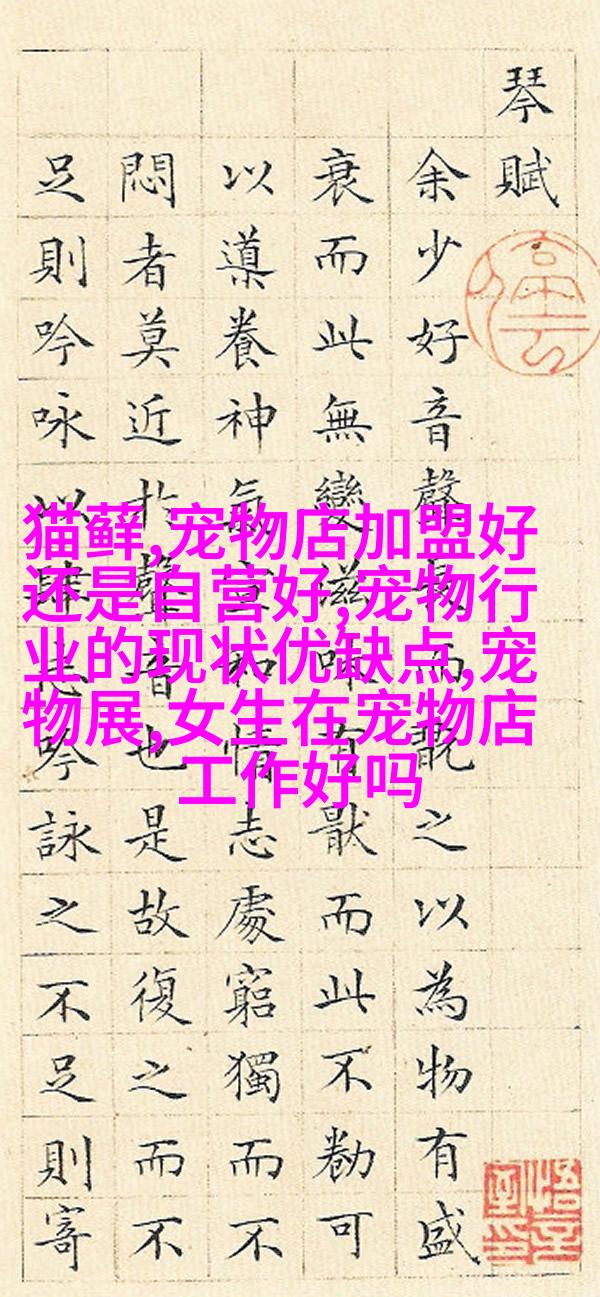 琴賦
余少好音聲長而翫之以為物有盛
衰而此無變滋味有猒而此不勌可
以導養神氣宣和情志處窮獨而不
悶者莫近於聲音也是故復之而不
足則吟咏以肆志吟詠之不足則寄
猫藓,宠物店加盟好
还是自营好,宠物行
业的现状优缺点,宠
物展,女生在宠物店
工作好吗